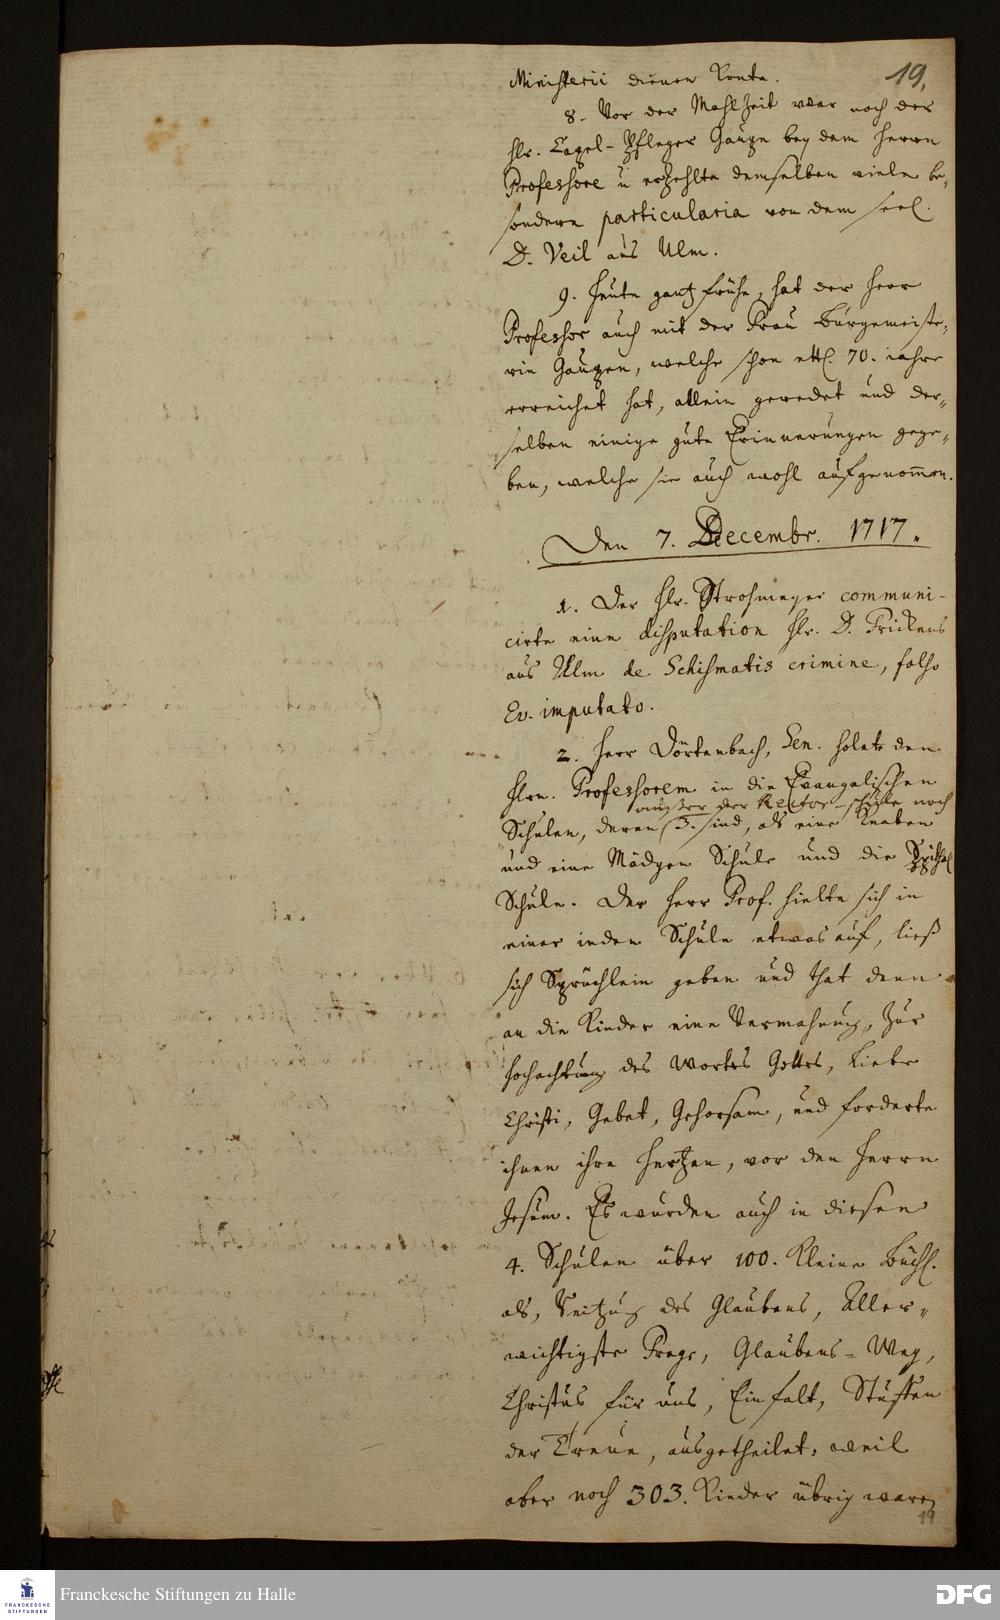 19.
Ministerii dienen konte.
8. Vor der Mahlzeit war noch der
Hr. Capel-Pfleger Gaupp bey dem Herrn
Professore u erzehlte demselben viele be-
sondere particularia von dem seel.
D. Veil aus Ulm.
9. Heute gantz frühe, hat der Herr
Professor auch mit der Frau Bürgemeiste-
rin Gaupen, welche schon ettl. 70. iahre
erreichet hat, allein geredet und der-
selben einige gute Erinnerungen gege-
ben, welche sie auch wohl aufgenom̄en.
Den 7. Decembr. 1717.
1. Der Hr. Strohmeyer communi-
cirte eine disputation Hr. D. Frickens
aus Ulm de Schismatis crimine, falso
Ev. imputato.
2. Herr Dörtenbach, Sen. holete den
Hrn. Professorem in die Evangelischen
ausser der Rector-schule noch
Schulen, deren 3. sind, als eine Knaben
und eine Mädgen Schule und die Spithal
Schule. Der Herr Prof. hielte sich in
einer ieden Schule etwas auf, ließ
sich Sprüchlein geben und that denn
an die Kinder eine Vermahnung, zur
Hochachtung des Wortes Gottes, Liebe
Christi, Gebet, Gehorsam, und forderte
ihnen ihre Hertzen, vor den Herrn
Jesum. Es wurden auch in diesen
4. Schulen über 100. kleine Büchl.
als, des Glaubens, Aller-
wichtigste Frage, Glaubens-Weg,
Christus für uns, Einfalt, Stuffen
der Treue, ausgetheilet; weil
aber noch 303. Kinder übrig waren
19
FRANCKESCHE
STIFTUNGEN
Franckesche Stiftungen zu Halle
DFG